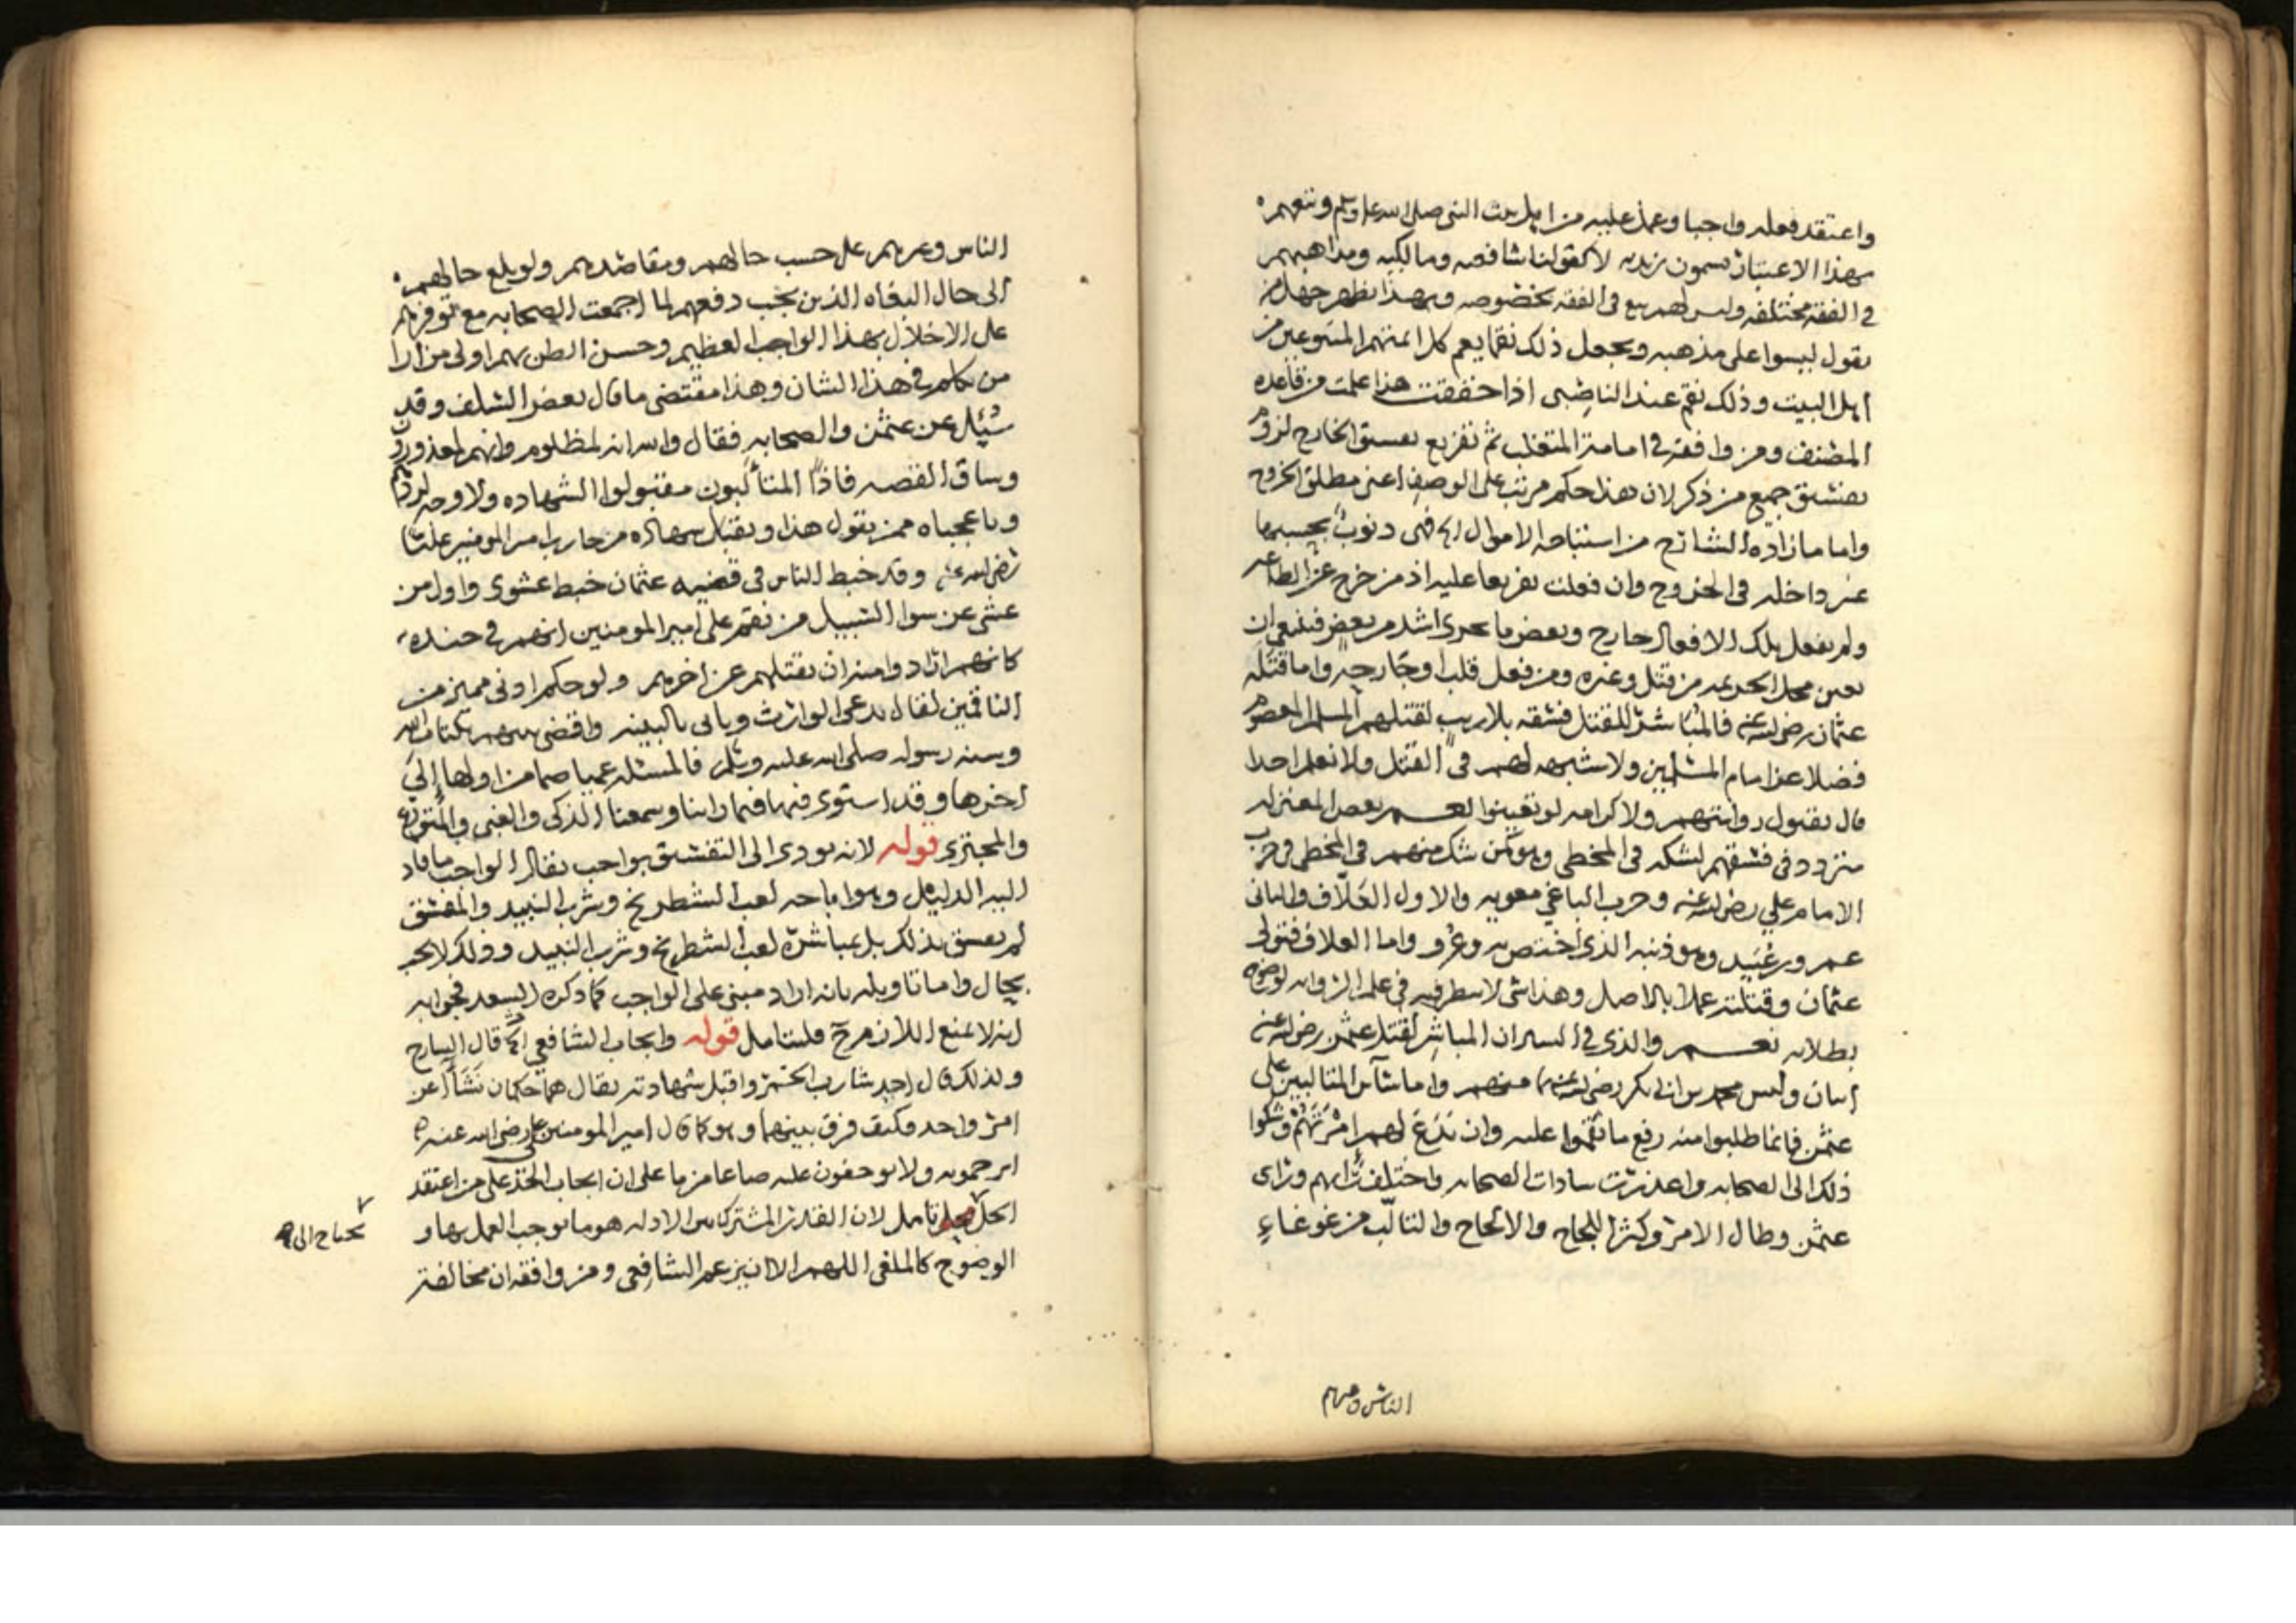 واعتقد فعله واجبا وعمل عليه من اهل بيت النبي صلى الله عليه وسلم وتبعهم
بهذا الاعتبار يسمون زيديه لا كقولنا شافعيه ومالكيه ومذاهبهم
في الفقه مختلفه وليس لهم تبع في الفقه بخصوصه وبهذا يظهر جهل من
يقول ليسوا على مذهبه ويجعل ذلك نقما يعم كل ائمتهم المتبوعين من
اهل البيت وذلك نقم عند الناصبي اذا حققت هذا علمت من قاعدة
المصنف ومن وافقه في امامة المتغلب ثم تفريع تفسيق الخارج لزوم
تفسيق جميع من ذكر لان هذا حكم مرتب على الوصف اعني مطلق الخروج
واما ما زاده الشارح من استباحه الاموال الخ فهي ذنوب بحسبها
غير داخله في الخروج وان فعلت تفريعا عليه اذ من خرج عن الطاعه
ولم يفعل تلك الافعال خارج وبعض ما يجري اشد من بعض فينبغي ان
يعين محل الجريمه من قتل وغيره ومن فعل قلب او جارحه واما قتله
عثمان رضي الله عنه فالمباشر للقتل فسقه بلا ريب لقتلهم المسلم المعصوم
فضلا عن امام المسلمين ولا شبهه لهم في القتل ولا نعلم احدا
قال بقبول روايتهم ولا كرامه لو تعينوا نعم بعض المعتزله
متردد في فسقهم لشكه في المخطي وهو كمن شك منهم في المخطي في حرب
الامام علي رضي الله عنه وحرب الباغي معويه والاول العلاف والثاني
عمرو بن عبيد وهو ذنبه الذي اختص به وعرو واما العلاف فتولى
عثمان وقتلته عملا بالاصل وهذا شي لا ينظر فيه في علم الروايه لوضوح
بطلانه نعم والذي في السير ان المباشر لقتل عثمن رضي الله عنه
اثنان وليس محمد بن ابي بكر رضي الله عنهما منهم واما سائر المتالبين على
عثمن فانما طلبوا منه رفع ما نقموا عليه وان يدع لهم امرتهم وشكوا
ذلك الى الصحابه واعذرت سادات الصحابه واختلف رايهم وراى
عثمن وطال الامر وكثر اللجاج والالحاح والتالب من غوغاء
الناس وغيرهم
الناس وغيرهم على حسب حالهم ومقاصدهم ولو بلغ حالهم
الى حال البغاه الذين يجب دفعهم لما اجمعت الصحابه مع توفرهم
على الاخلال بهذا الواجب العظيم وحسن الظن بهم اولى من ارا
من تكلم في هذا الشان وهذا مقتضى ما قال بعض السلف وقد
سئل عن عثمن والصحابه فقال والله انه لمظلوم وانهم لمعذورون
وساق القصه فاذًا المتالبون مقبولوا الشهاده ولا وجه لردهم
ويا عجباه ممن يقول هذا ويقبل شهاده من حارب امير المومنين عليا
رضي الله عنه وقد خبط الناس في قضيه عثمان خبط عشوى واول من
عشي عن سوا السبيل من نقم على امير المومنين انهم في جنده
كانهم ارادوا منه ان يقتلهم عن اخرهم ولو حكم ادنى مميز من
الناقمين لقال يدعي الوارث وياتي بالبينه واقضي بينهم بكتاب الله
وسنه رسوله صلى الله عليه وسلم فالمسئله عميا صما من اولها الى
اخرها وقد استوى فيها فيما راينا وسمعنا الذكي والغبي والمتورع
والمجتري قوله لانه يودي الى التفسيق بواجب يقال الواجب ما قاد
اليه الدليل وهو اباحه لعب الشطرنج وشرب النبيذ والمفسق
لم يفسق بذلك بل بمباشرة لعب الشطرنج وشرب النبيذ وذلك لا يجب
بحال واما تاويله بانه اراد مبني على الواجب كما ذكره السعد فجوابه
انه لا يمنع اللازم ح فليتامل قوله وايجاب الشافعي الخ قال الشارح
ولذلك قال احد شارب الخمر واقبل شهادته يقال هما حكمان نشأا عن
امر واحد فكيف فرق بينهما وهو كما قال امير المومنين علي رضي الله عنه
ايرجمونه ولا يوجبون عليه صاعا من ما على ان ايجاب الحد على من اعتقد
الحل محل تامل لان القدر المشترك بين الادله هو ما يوجب العمل بها و
يحتاج الى
الوضوح كالملغي اللهم الا ان يزعم الشافعي ومن وافقه ان مخالفة